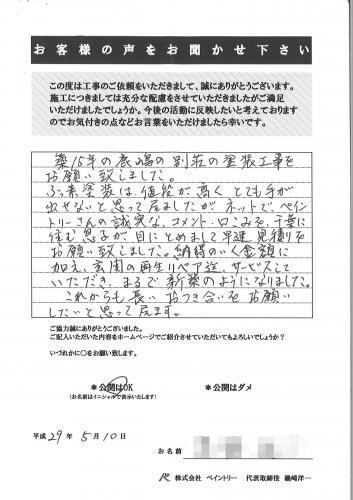 お客様の声をお聞かせ下さい
この度は工事のご依頼をいただきまして、誠にありがとうございます。
施工につきましては充分な配慮をさせていただきましたがご満足
いただけましたでしょうか。今後の活動に反映したいと考えております
のでお気付きの点などお言葉をいただけましたら幸いです。
築15年の鹿嶋の別荘の塗装工事を
お願い致しました。
ふっ素塗装は、値段が高く とても手が
出せないと思って居ましたが ネットで、ペイン
トリーさんの誠実な、コメント・口こみを、千葉に
住む息子が目にとめまして早速 見積りを
お願い致しました。納得のいく金額に
加え、玄関の再生リペア迄、サービスして
いただき、まるで新築のようになりました。
これからも長い お付き合いを お願い
したいと思って居ます。
ご協力誠にありがとうございました。
ご記入いただいた内容をホームページでご紹介させていただいてもよろしいでしょうか?
いづれかに○をお願い致します。
*公開はOK *公開はダメ
(お名前はイニシャルで表示いたします)
平成 29 年 5 月 10 日
お名前
株式会社 ペイントリー 代表取締役 磯崎洋一